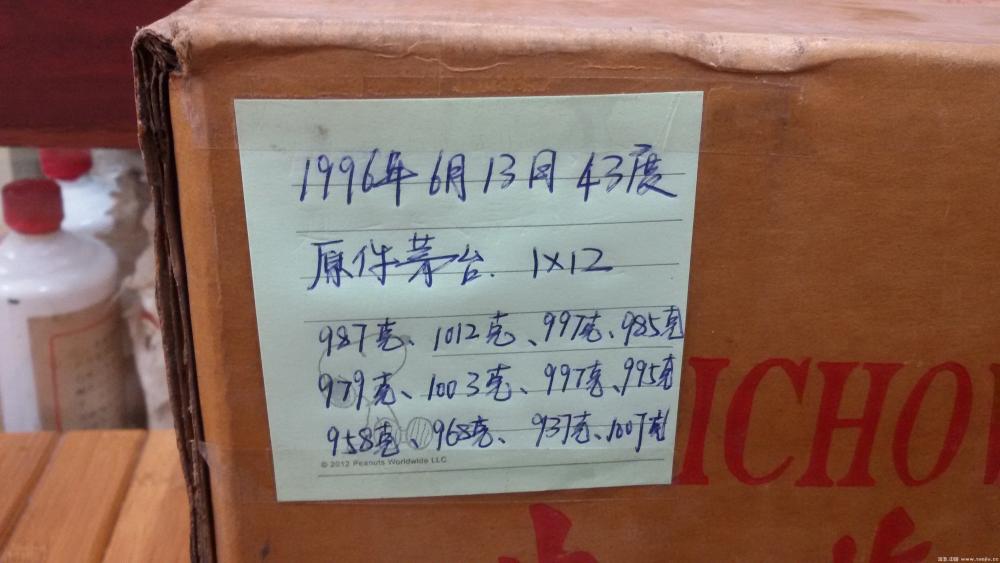 1996年6月13日 43度
原件茅台. 1×12
987克、1012克、997克、985克
979克、1003克、997克、995克
958克、968克、937克、1007克
© 2012 Peanuts Worldwide LLC
ICHO